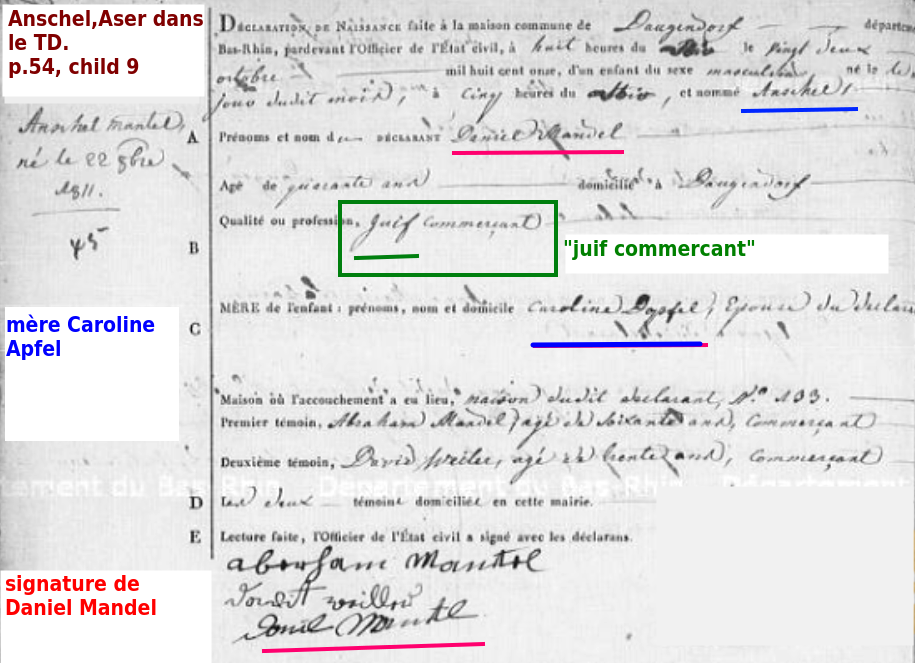 Anschel,Aser dans
le TD.
p.54, child 9
DÉCLARATION DE NAISSANCE faite à la maison commune de Daugendorf départem
Bas-Rhin, pardevant l'Officier de l'État civil, à huit heures du le vingt deux
octobre mil huit cent onze, d'un enfant du sexe masculin né le
jour dudit mois, à Cinq heures du , et nommé Anschel
Anschel Mantel,
né le 22 8bre
1811.
45
A
Prénoms et nom du DÉCLARANT Daniel Mandel
Agé de quarante ans domicilié à Daugendorf
B
Qualité ou profession, Juif Commerçant
"juif commercant"
C
MÈRE de l'enfant : prénoms, nom et domicile Caroline , Epouse du declara
mère Caroline
Apfel
Maison où l'accouchement a eu lieu, maison dudit declarant, N.° 103.
Premier témoin, Abraham Mandel, agé de Soixante ans, Commerçant
Deuxième témoin, David Weiler, agé de trente ans, Commerçant
tement du Bas-Rhin Département du Bas-Rhin Département
D
Les deux témoins domiciliés en cette mairie.
E
Lecture faite, l'Officier de l'État civil a signé avec les déclarans.
abersam Mantel
signature de
Daniel Mandel
Daniel Mantel